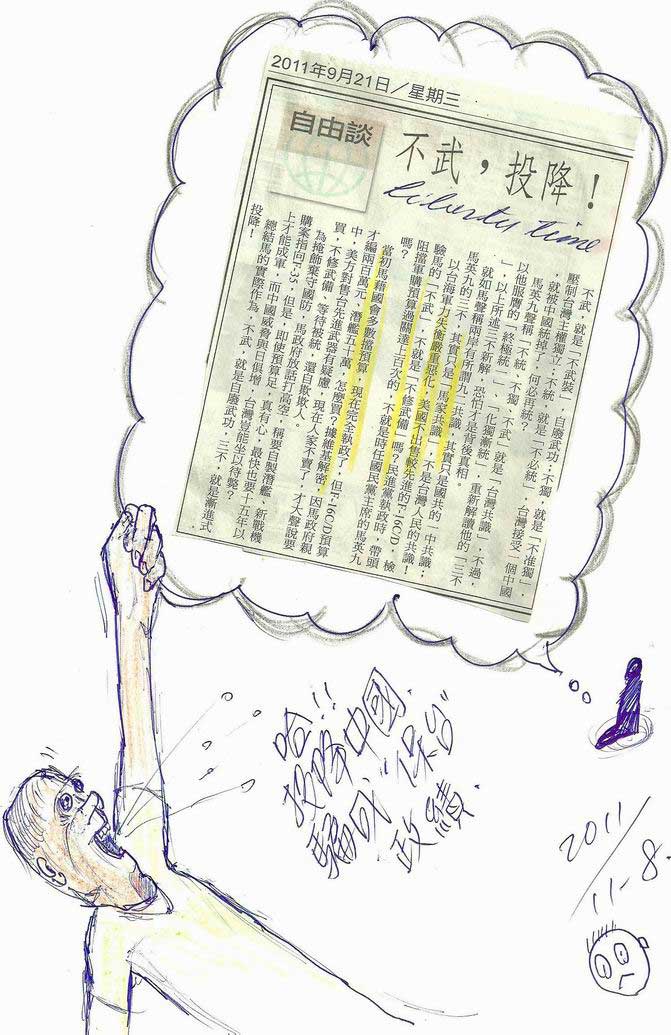 2011年9月21日／星期三
自由談
不武，投降！
liberty time
不武，就是「不武裝」，自廢武功；不獨，就是「不准獨」，
壓制台灣主權獨立；不統，就是「不必統」，台灣接受一個中國
，就被中國統掉了，何必再統？
馬英九聲稱，不統、不獨、不武，就是「台灣共識」，不過，
以他服膺的「終極統一」、「化獨漸統」，重新解讀他的「三不
」，以上所述三不新解，恐怕才是背後真相。
就如馬聲稱兩岸有所謂九二共識，其實只是國共的一中共識；
馬英九的三不，其實只是「馬家共識」，不是台灣人民的共識！
以台海軍力失衡嚴重惡化，美國不出售較先進的F-16C/D，檢
驗馬的「不武」，不就是「不修武備」嗎？民進黨執政時，帶頭
阻擋軍購預算過關達上百次的，不就是時任國民黨主席的馬英九
嗎？
當初馬藉國會多數擋預算，現在完全執政了，但F-16C/D預算
才編兩百萬元、潛艦五十萬，怎麼買？據維基解密，因馬政府親
中，美方對售台先進武器有疑慮，現在人家不賣了，才大聲說要
買，不修武備、等待被統，還自欺欺人。
為掩飾棄守國防，馬政府放話打高空，稱要自製潛艦，新戰機
購案指向F-35，但是，即使預算足、真有心，最快也要十五年以
上才能成軍，而中國威脅與日俱增，台灣豈能坐以待斃？
總結馬的實際作為，不武，就是自廢武功，三不，就是漸進式
投降！
哈!!
投降中國.
騙成“保台”
政績.
2011
11-8.